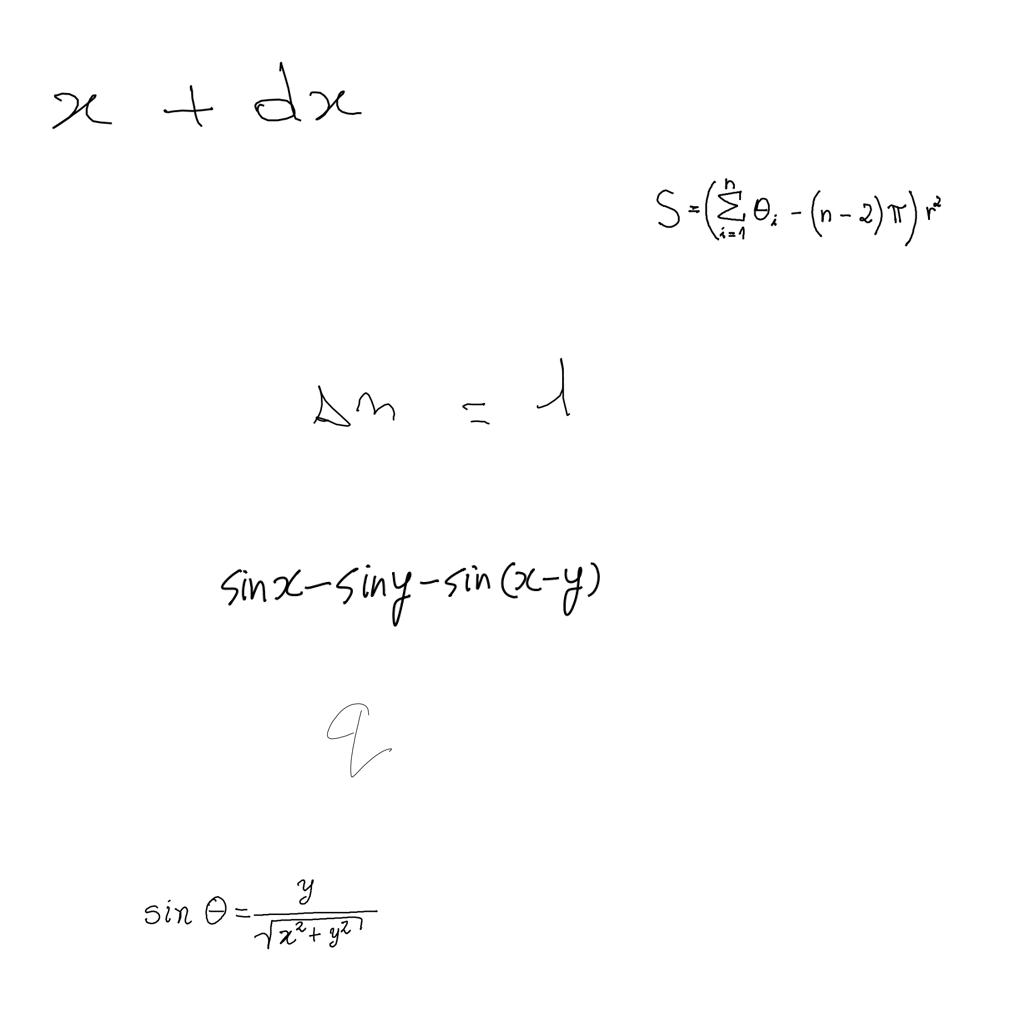 x + dx
S = (\sum_{i=1}^{n} θ_i - (n - 2)π) r^2
Δn = λ
sin x - sin y - sin (x - y)
q
sin θ = \frac{y}{\sqrt{x^2 + y^2}}